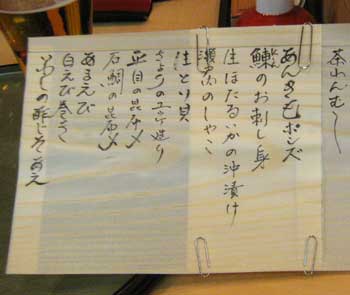 茶わんむし
あんきもポンズ
鰊のお刺し身
生ほたるいかの沖漬け
瀬戸内のしゃこ
生とり貝
さよりの
平目の昆布〆
石鯛の昆布〆
あまえび
白えび
いわしの酢じそあえ